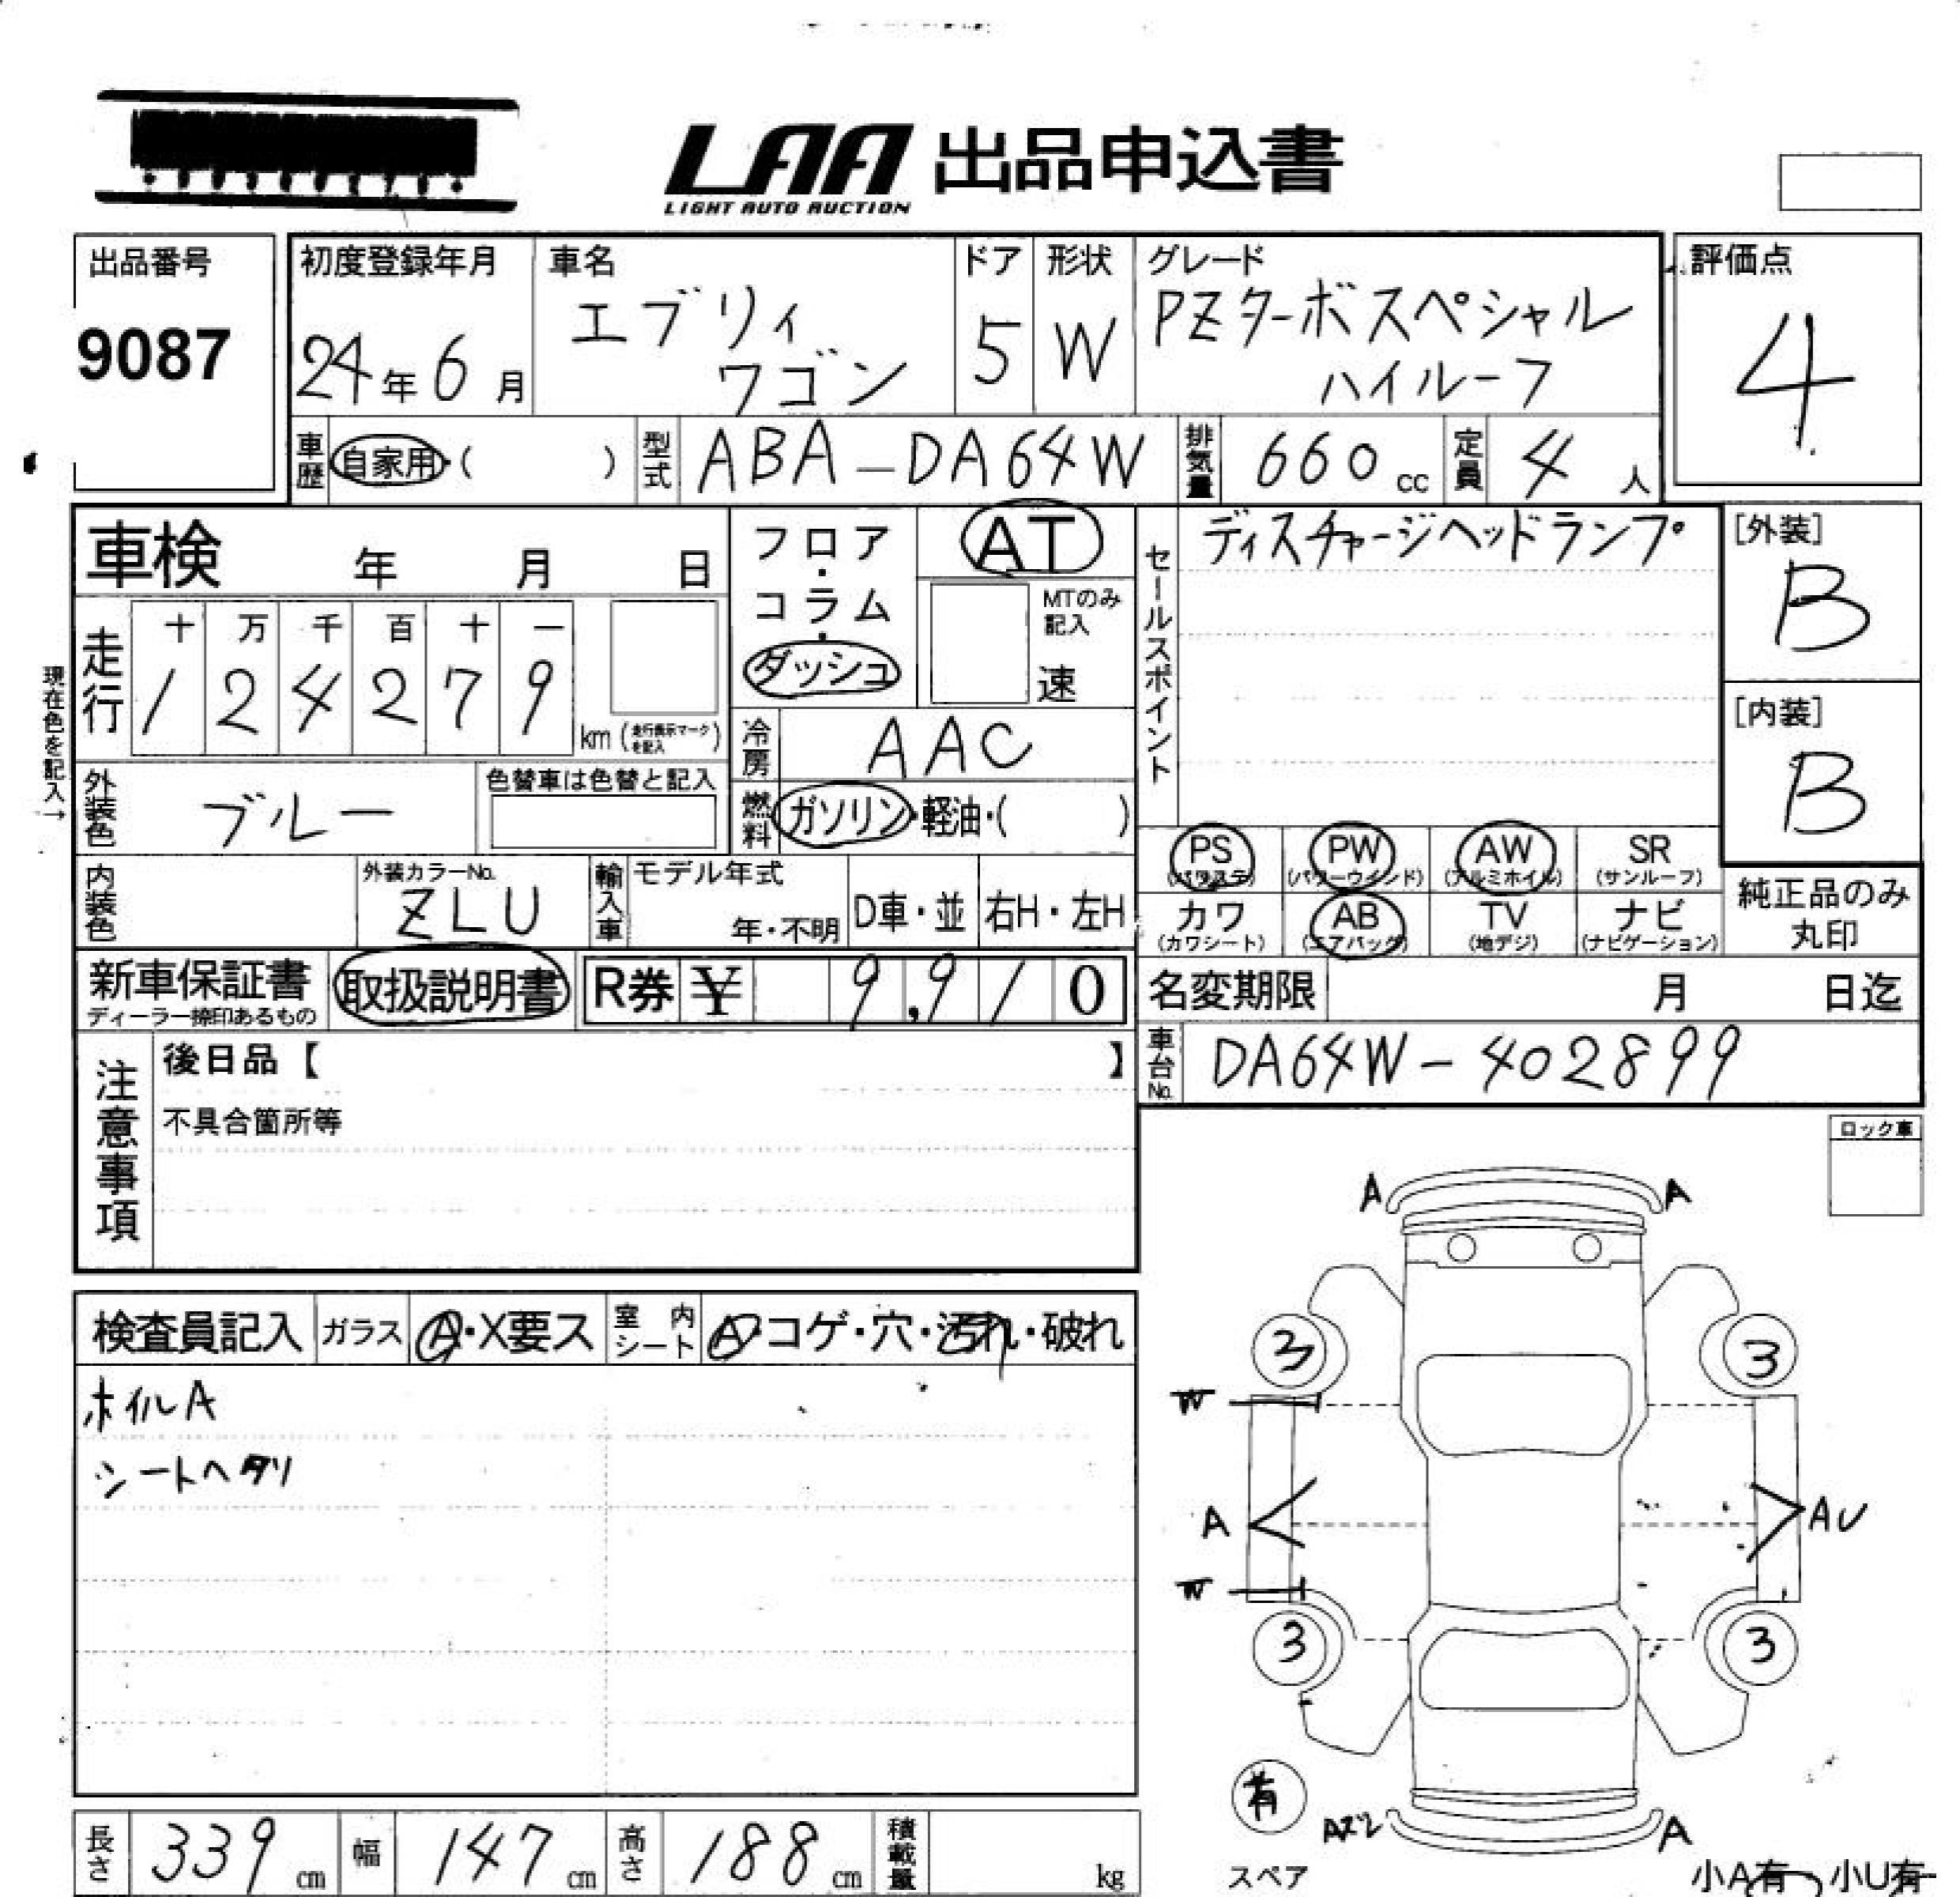 LAA 出品申込書
LIGHT AUTO AUCTION
出品番号
9087
初度登録年月
24年6月
車名
エブリィ
ワゴン
ドア
5
形状
W
グレード
PZターボスペシャル
ハイルーフ
評価点
4
車歴 自家用・( )
型式 ABA-DA64W
排気量 660 cc
定員 4 人
現在色を記入→
車検 年 月 日
走行
十 万 千 百 十 一
1 2 4 2 7 9 km (走行表示マークを記入)
フロア・コラム・ダッシュ
AT
MTのみ記入
速
冷房 AAC
燃料 ガソリン・軽油・( )
外装色 ブルー
色替車は色替と記入
内装色
外装カラーNo.
ZLU
輸入車
モデル年式
年・不明
D車・並
右H・左H
セールスポイント
ディスチャージヘッドランプ
[外装]
B
[内装]
B
PS PW AW SR
(パワステ) (パワーウインド) (アルミホイル) (サンルーフ)
カワ AB TV ナビ
(カワシート) (エアバッグ) (地デジ) (ナビゲーション)
純正品のみ
丸印
新車保証書
ディーラー捺印あるもの
取扱説明書
R券 ¥ 9,910
名変期限 月 日迄
車台No. DA64W-402899
注意事項
後日品【 】
不具合箇所等
ロック車
検査員記入
ガラス A・X要ス
室内シート A・コゲ・穴・汚れ・破れ
ホイルA
シートヘタリ
A A
3 3
W
A AU
W
3 3
有
スペア
Aズレ A
小A有 小U有
長さ 339 cm
幅 147 cm
高さ 188 cm
積載量 kg